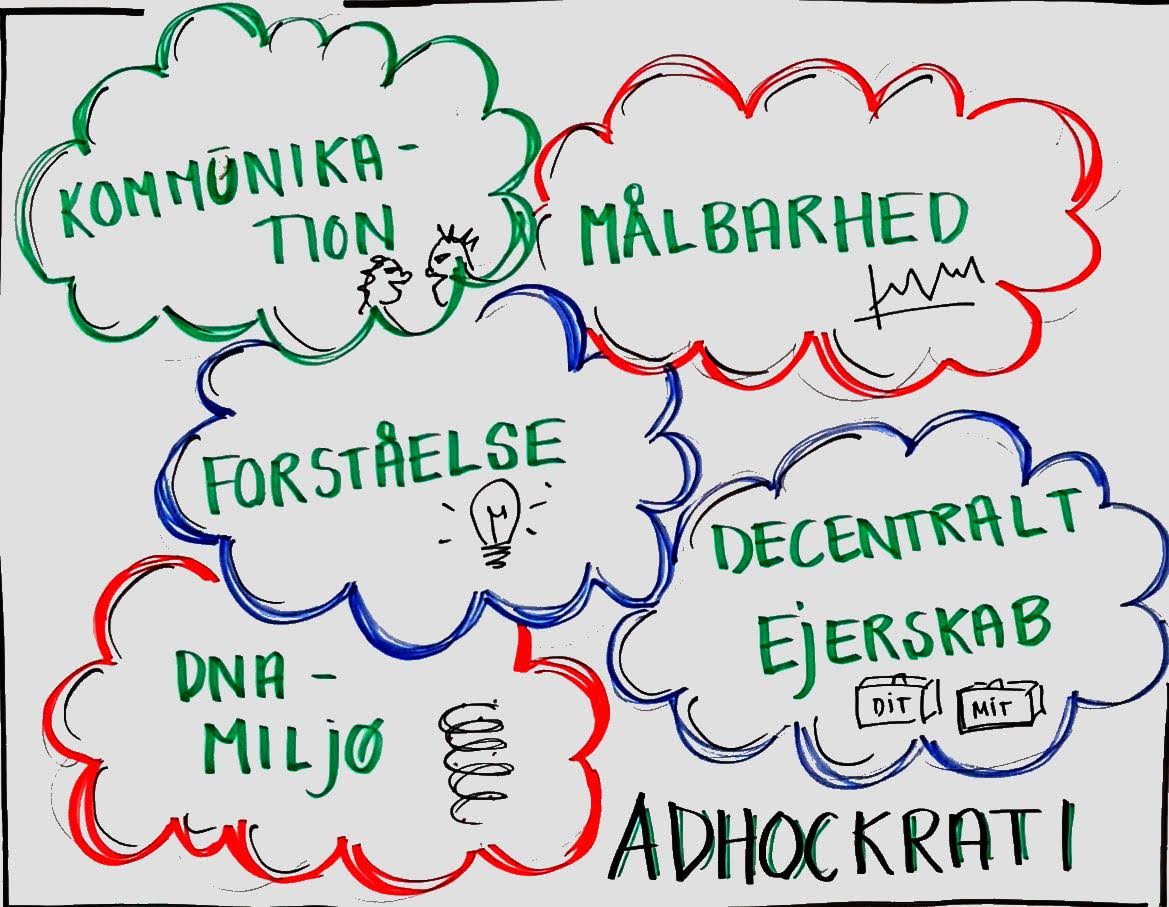 KOMMŪNIKA-
TION
MÅLBARHED
FORSTÅELSE
DECENTRALT
EJERSKAB
DIT MIT
DNA-
MILJØ
ADHOCKRATI